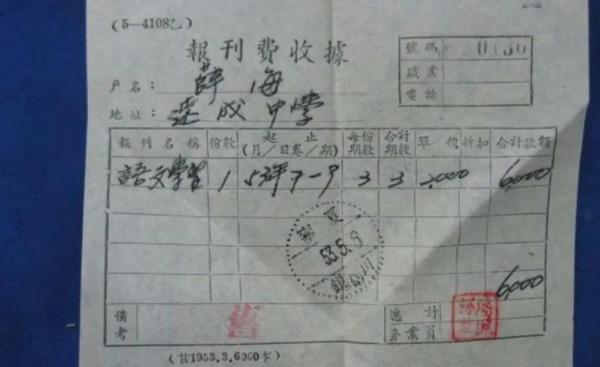 (5—4108乙)
報刊費收據
號碼
戶名: 薛海
職業
地址: 中學
電話
報刊名稱 份數 起止(月/日卷/期) 每份期數 合計期數 單價 折扣 合計款額
語文學習 1 53年7-9 3 3 2000 6,000
53.5.6
6,000
備考
總計
營業員
(甘1953.3.6300本)